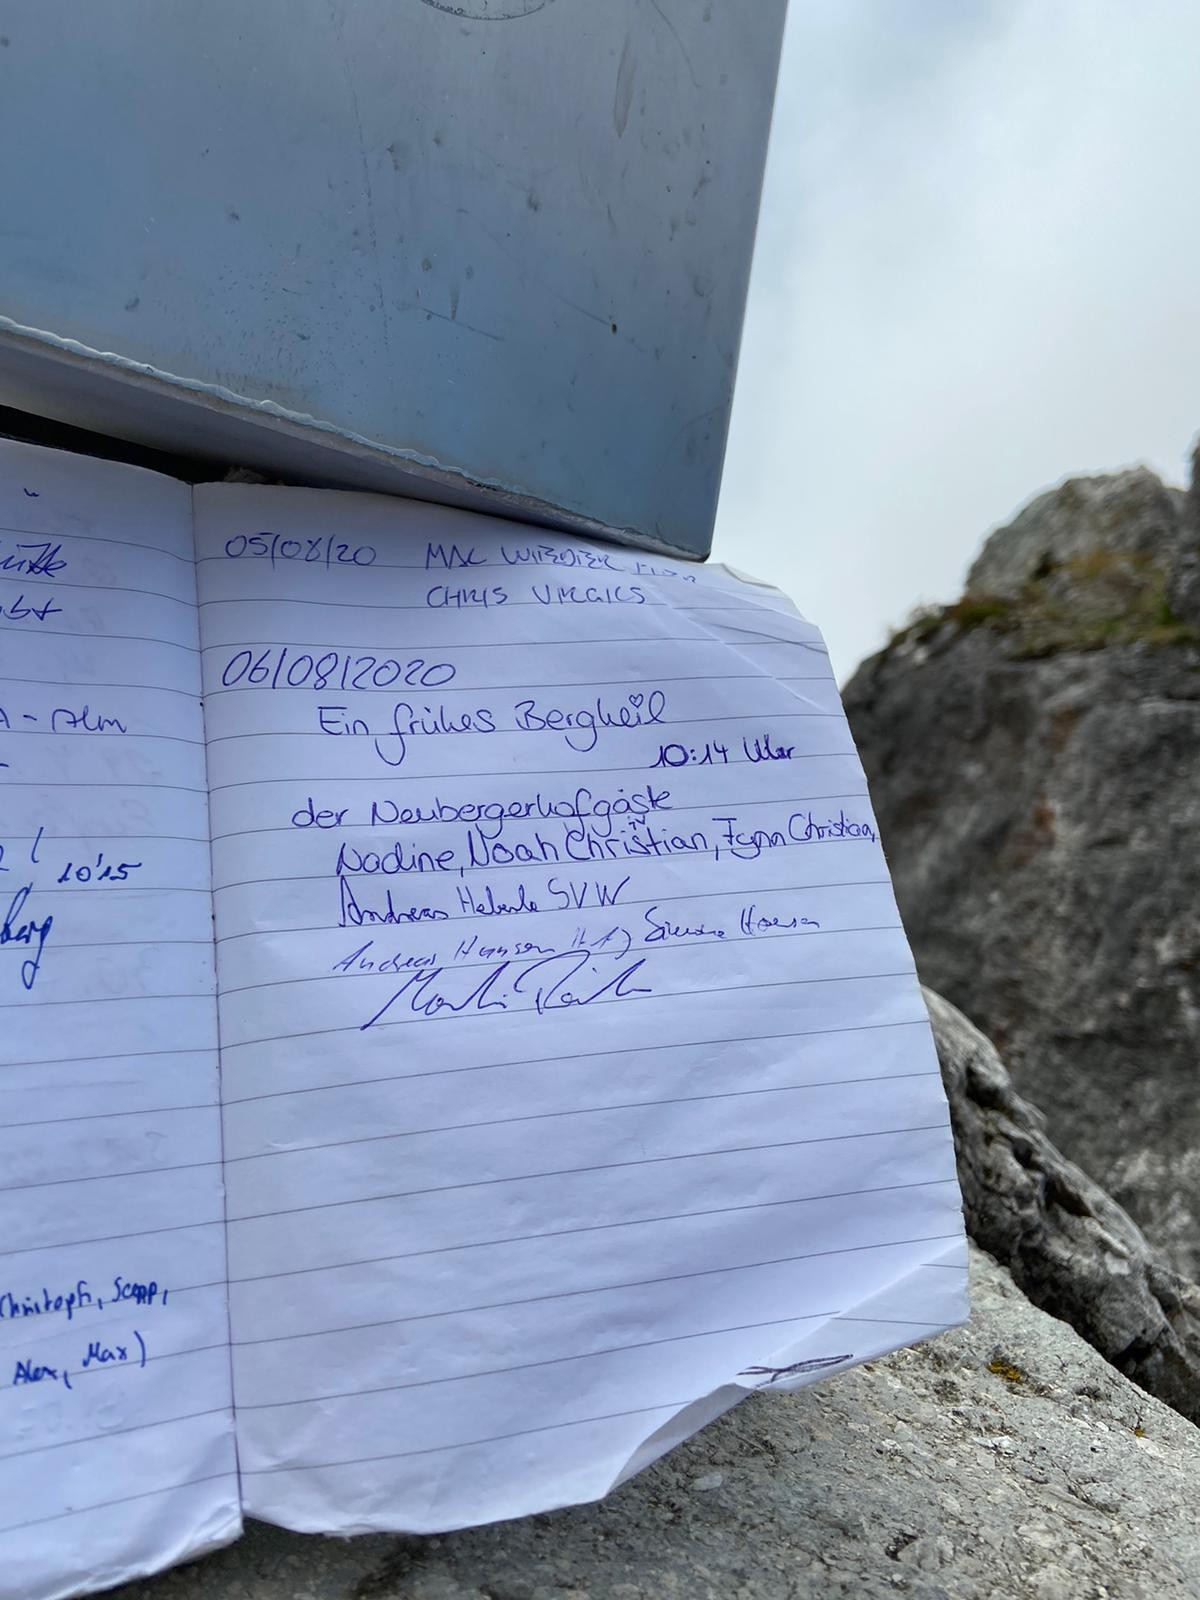 A - Alm
10'15
berg
Christoph, Sepp,
Alex, Max)
05/08/20 MAC WIEDER
CHRIS
06/08/2020
Ein frühes Bergheil
10:14 Uhr
der Neubergerhofgäste
Nadine, Noah Christian, Fynn Christian,
Andreas Heberle SVW
Andreas Hansen Simone Hansen
Martin